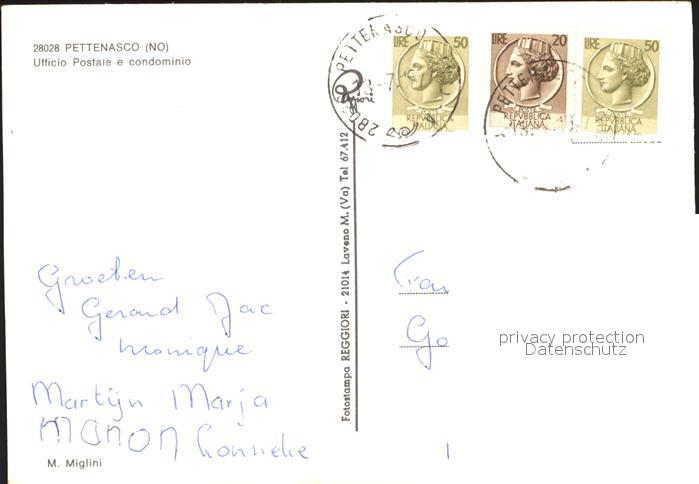 28028 PETTENASCO (NO)
Ufficio Postale e condominio
PETTENASCO
LIRE 50
LIRE 20
LIRE 50
POSTE
REPVBBLICA
ITALIANA
POSTE
REPVBBLICA
ITALIANA
POSTE
REPVBBLICA
ITALIANA
Fotostampa REGGIORI - 21014 Laveno M. (Va) Tel 67.412
Groeten
Gerard Jac
Monique
Martijn Marja
MANON Lonneke
Go
privacy protection
Datenschutz
M. Miglini